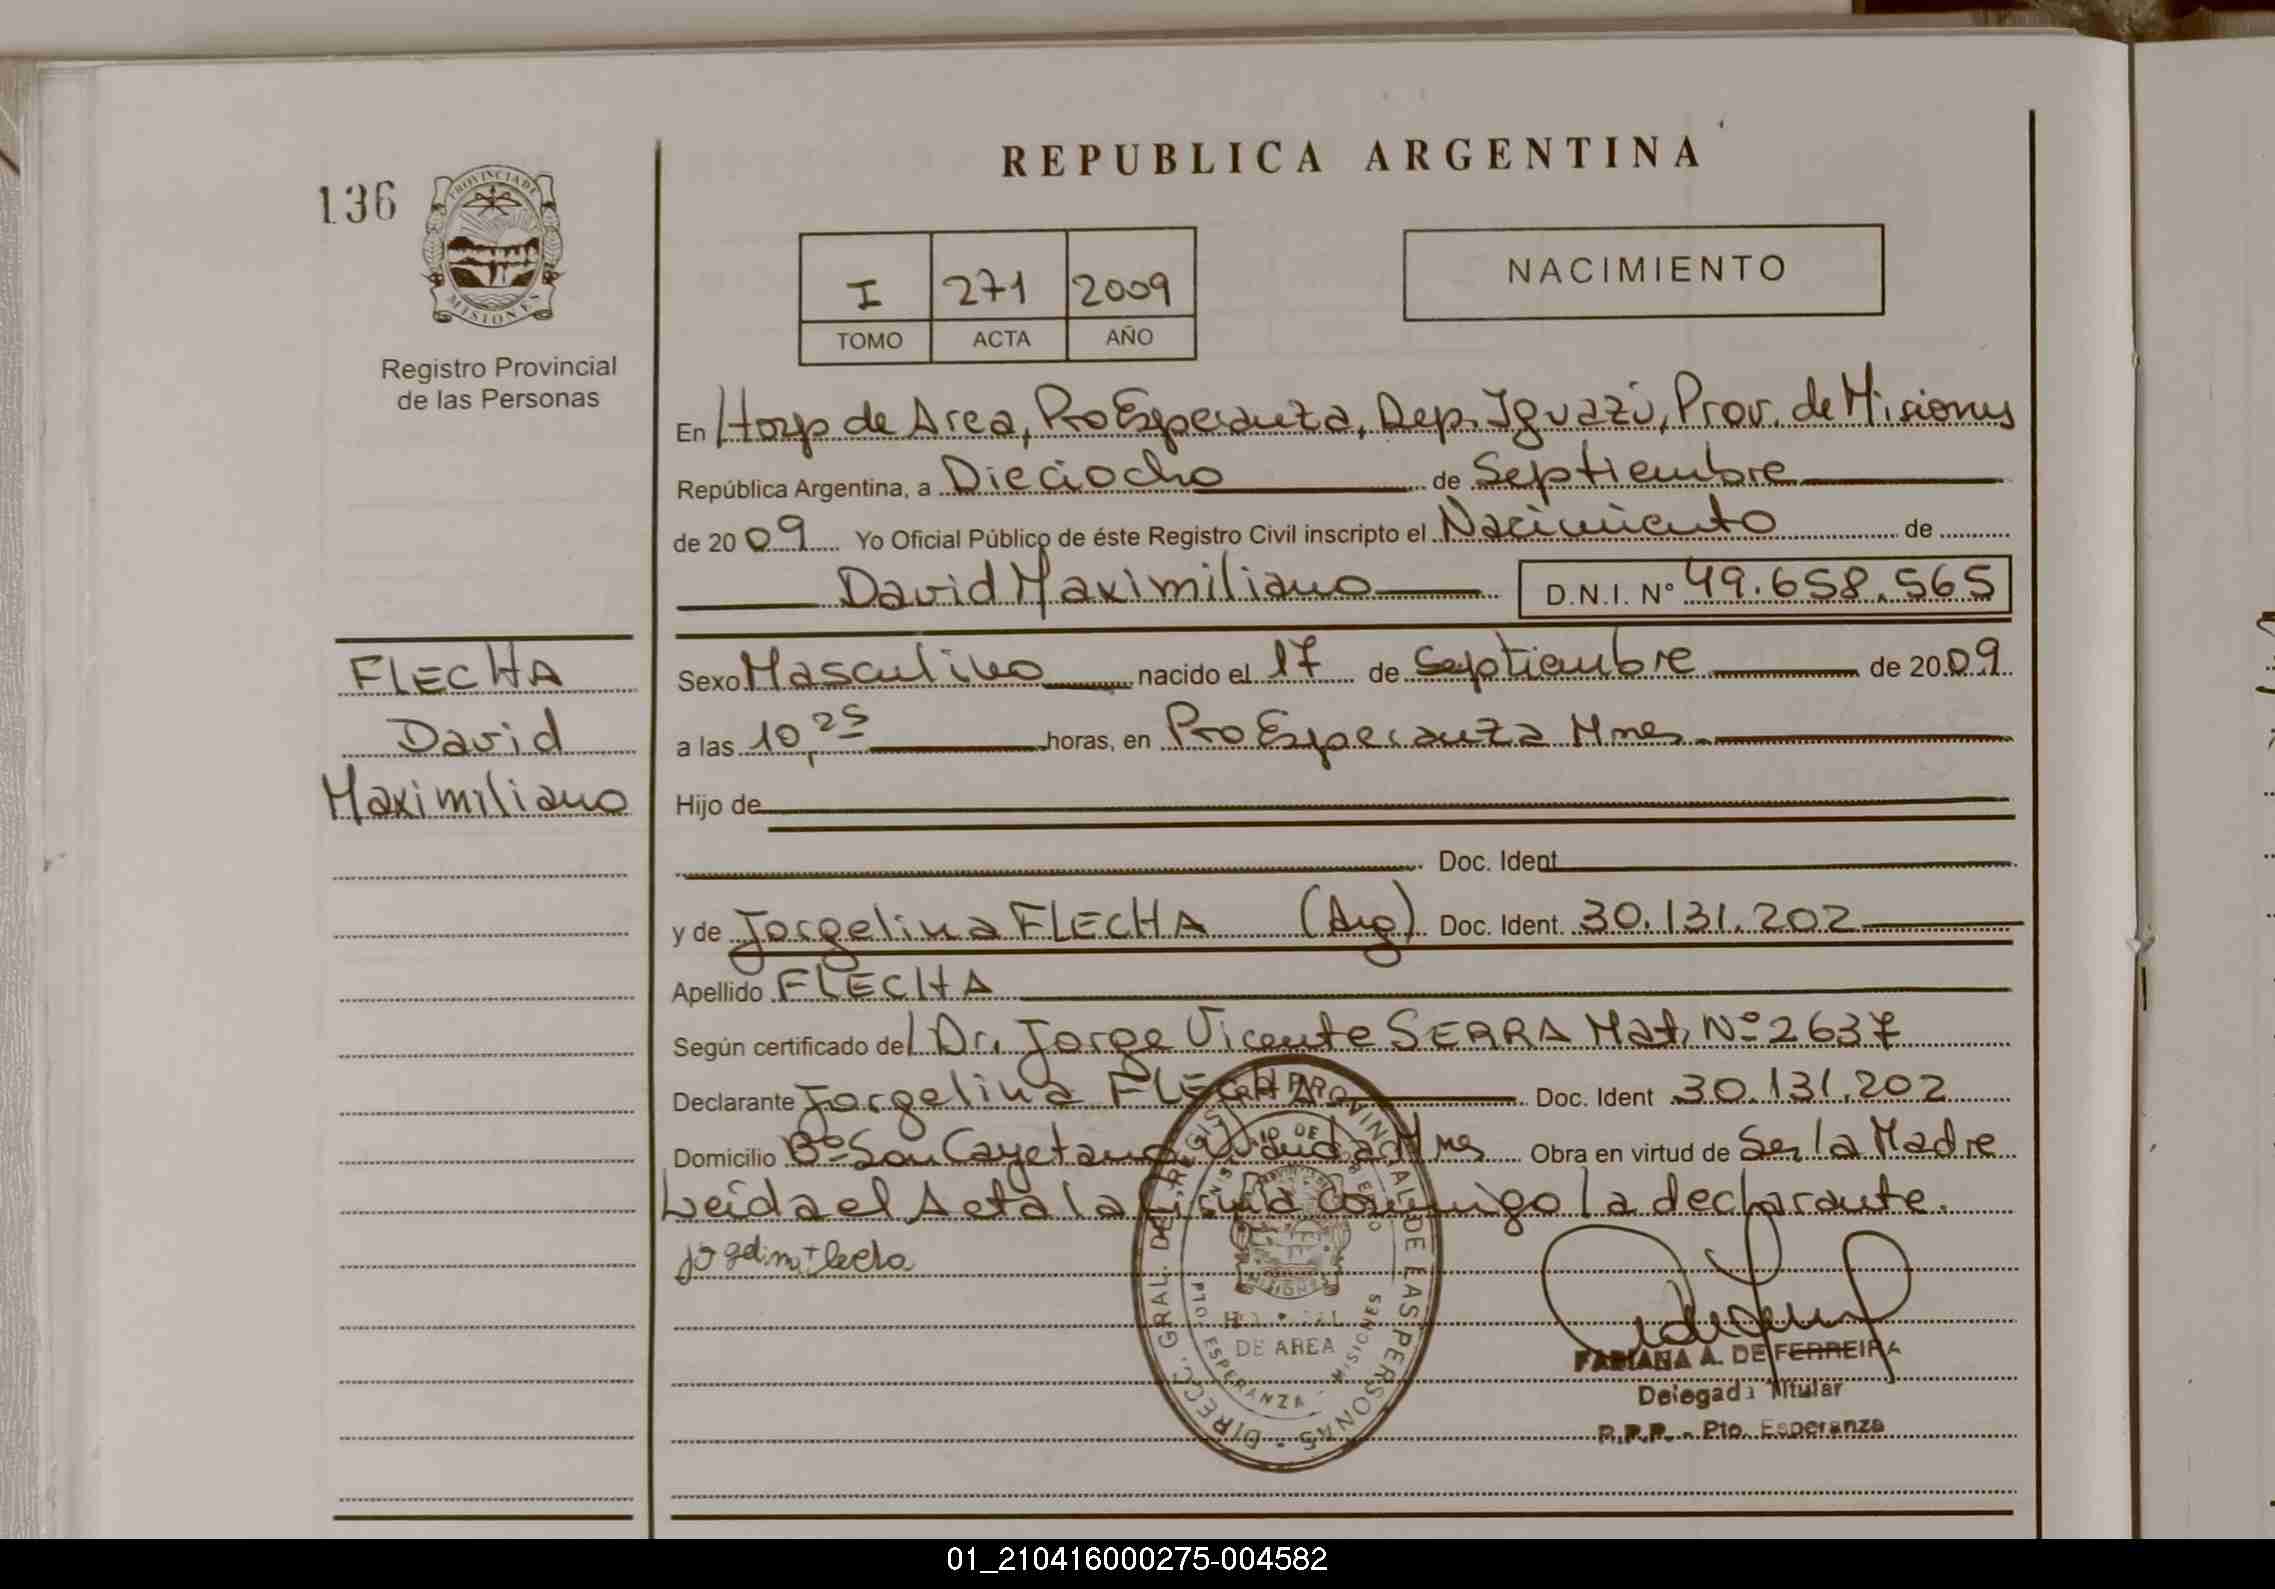 REPUBLICA ARGENTINA
136
PROVINCIA DE
MISIONES
Registro Provincial
de las Personas
I 271 2009
TOMO ACTA AÑO
NACIMIENTO
En Hosp de Area, Pto Esperanza, Dep. Iguazú, Prov. de Misiones
República Argentina, a Dieciocho de Septiembre
de 2009 Yo Oficial Público de éste Registro Civil inscripto el Nacimiento de
David Maximiliano D.N.I. Nº 49.658.565
FLECHA
David
Maximiliano
Sexo Masculino nacido el 17 de Septiembre de 2009
a las 10,25 horas, en Pto Esperanza Mnes
Hijo de
Doc. Ident
y de Jorgelina FLECHA (Arg) Doc. Ident. 30.131.202
Apellido FLECHA
Según certificado del Dr. Jorge Vicente SERRA Mat. Nº 2637
Declarante Jorgelina FLECHA Doc. Ident 30.131.202
Domicilio Bº San Cayetano Wanda Mnes Obra en virtud de Ser la Madre
Leida el Acta la firma conmigo la declarante.
DIRECC. GRAL. DEL REGISTRO PROVINCIAL DE LAS PERSONAS
DE AREA
PTO. ESPERANZA - MISIONES
FABIANA A. DE FERREIRA
Delegada Titular
R.P.P. - Pto. Esperanza
01_210416000275-004582